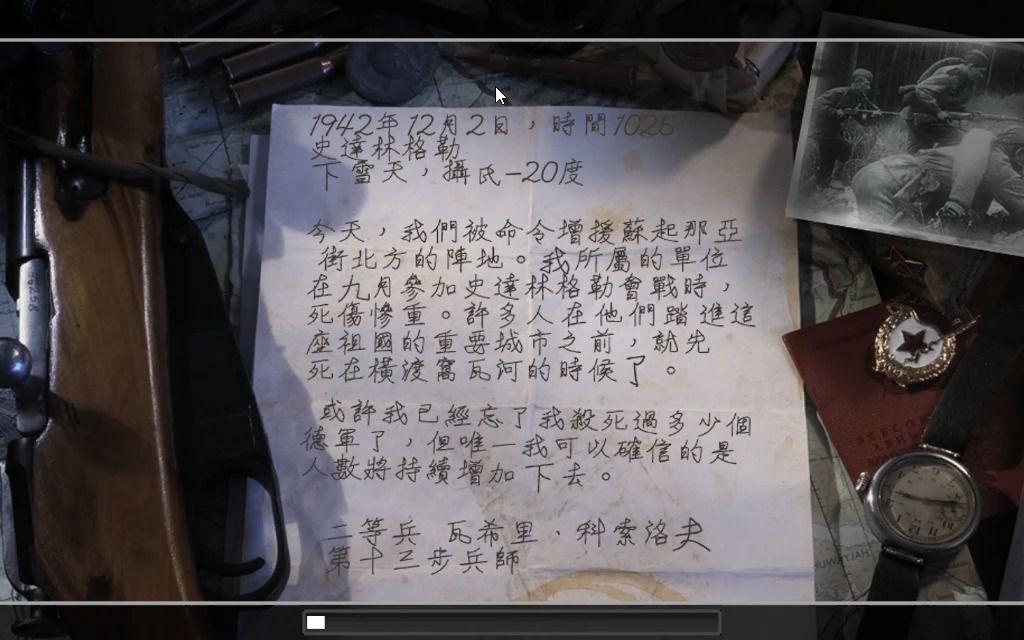 1942年12月2日，時間1026
史達林格勒
下雪天，攝氏-20度
今天，我們被命令增援蘇起那亞
街北方的陣地。我所屬的單位
在九月參加史達林格勒會戰時，
死傷慘重。許多人在他們踏進這
座祖國的重要城市之前，就先
死在橫渡窩瓦河的時候了。
或許我已經忘了我殺死過多少個
德軍了，但唯一我可以確信的是
人數將持續增加下去。
二等兵 瓦希里．科索洛夫
第十三步兵師